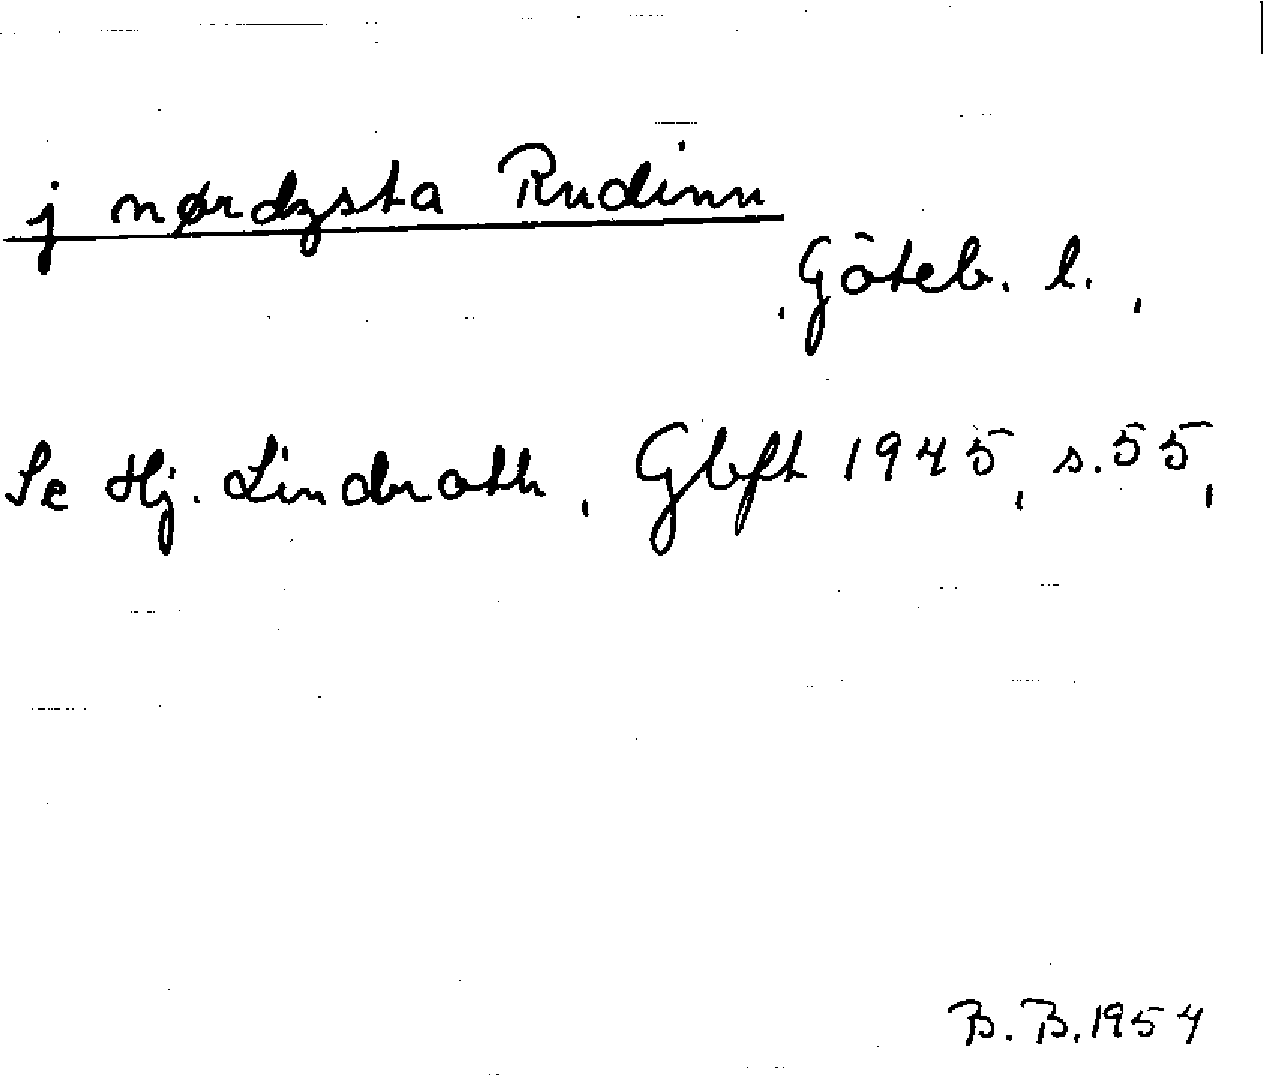 j nørdzsta Rudinu
Göteb. l.
Se Hj. Lindroth, Gbft 1945, s. 55,
B. B. 1954